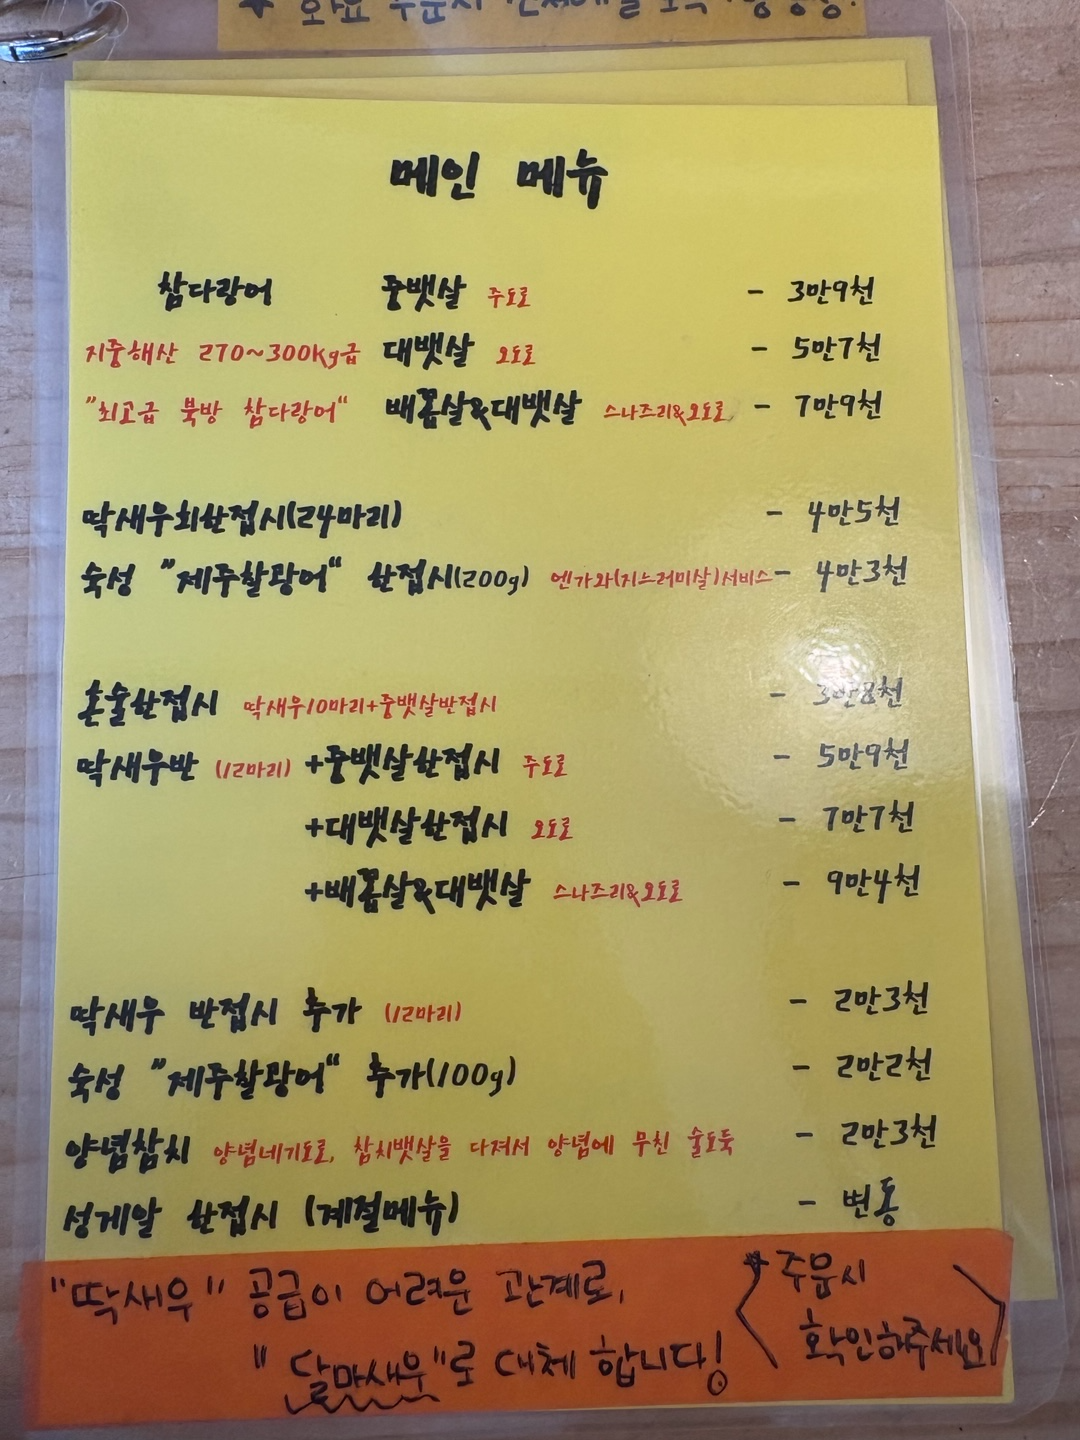 메인 메뉴
참다랑어 중뱃살 주도로 - 3만9천
지중해산 270~300kg급 대뱃살 오도로 - 5만7천
"최고급 북방 참다랑어" 배꼽살&대뱃살 스나즈리&오도로 - 7만9천
딱새우회한접시(24마리) - 4만5천
숙성 "제주찰광어" 한접시(200g) 엔가와(지느러미살)서비스 - 4만3천
혼술한접시 딱새우10마리+중뱃살반접시 - 3만8천
딱새우반 (12마리) +중뱃살한접시 주도로 - 5만9천
+대뱃살한접시 오도로 - 7만7천
+배꼽살&대뱃살 스나즈리&오도로 - 9만4천
딱새우 반접시 추가 (12마리) - 2만3천
숙성 "제주찰광어" 추가(100g) - 2만2천
양념참치 양념네기도로, 참치뱃살을 다져서 양념에 무친 술도둑 - 2만3천
성게알 한접시 (계절메뉴) - 변동
"딱새우" 공급이 어려운 관계로,
"달마새우"로 대체 합니다!
주문시
확인해주세요